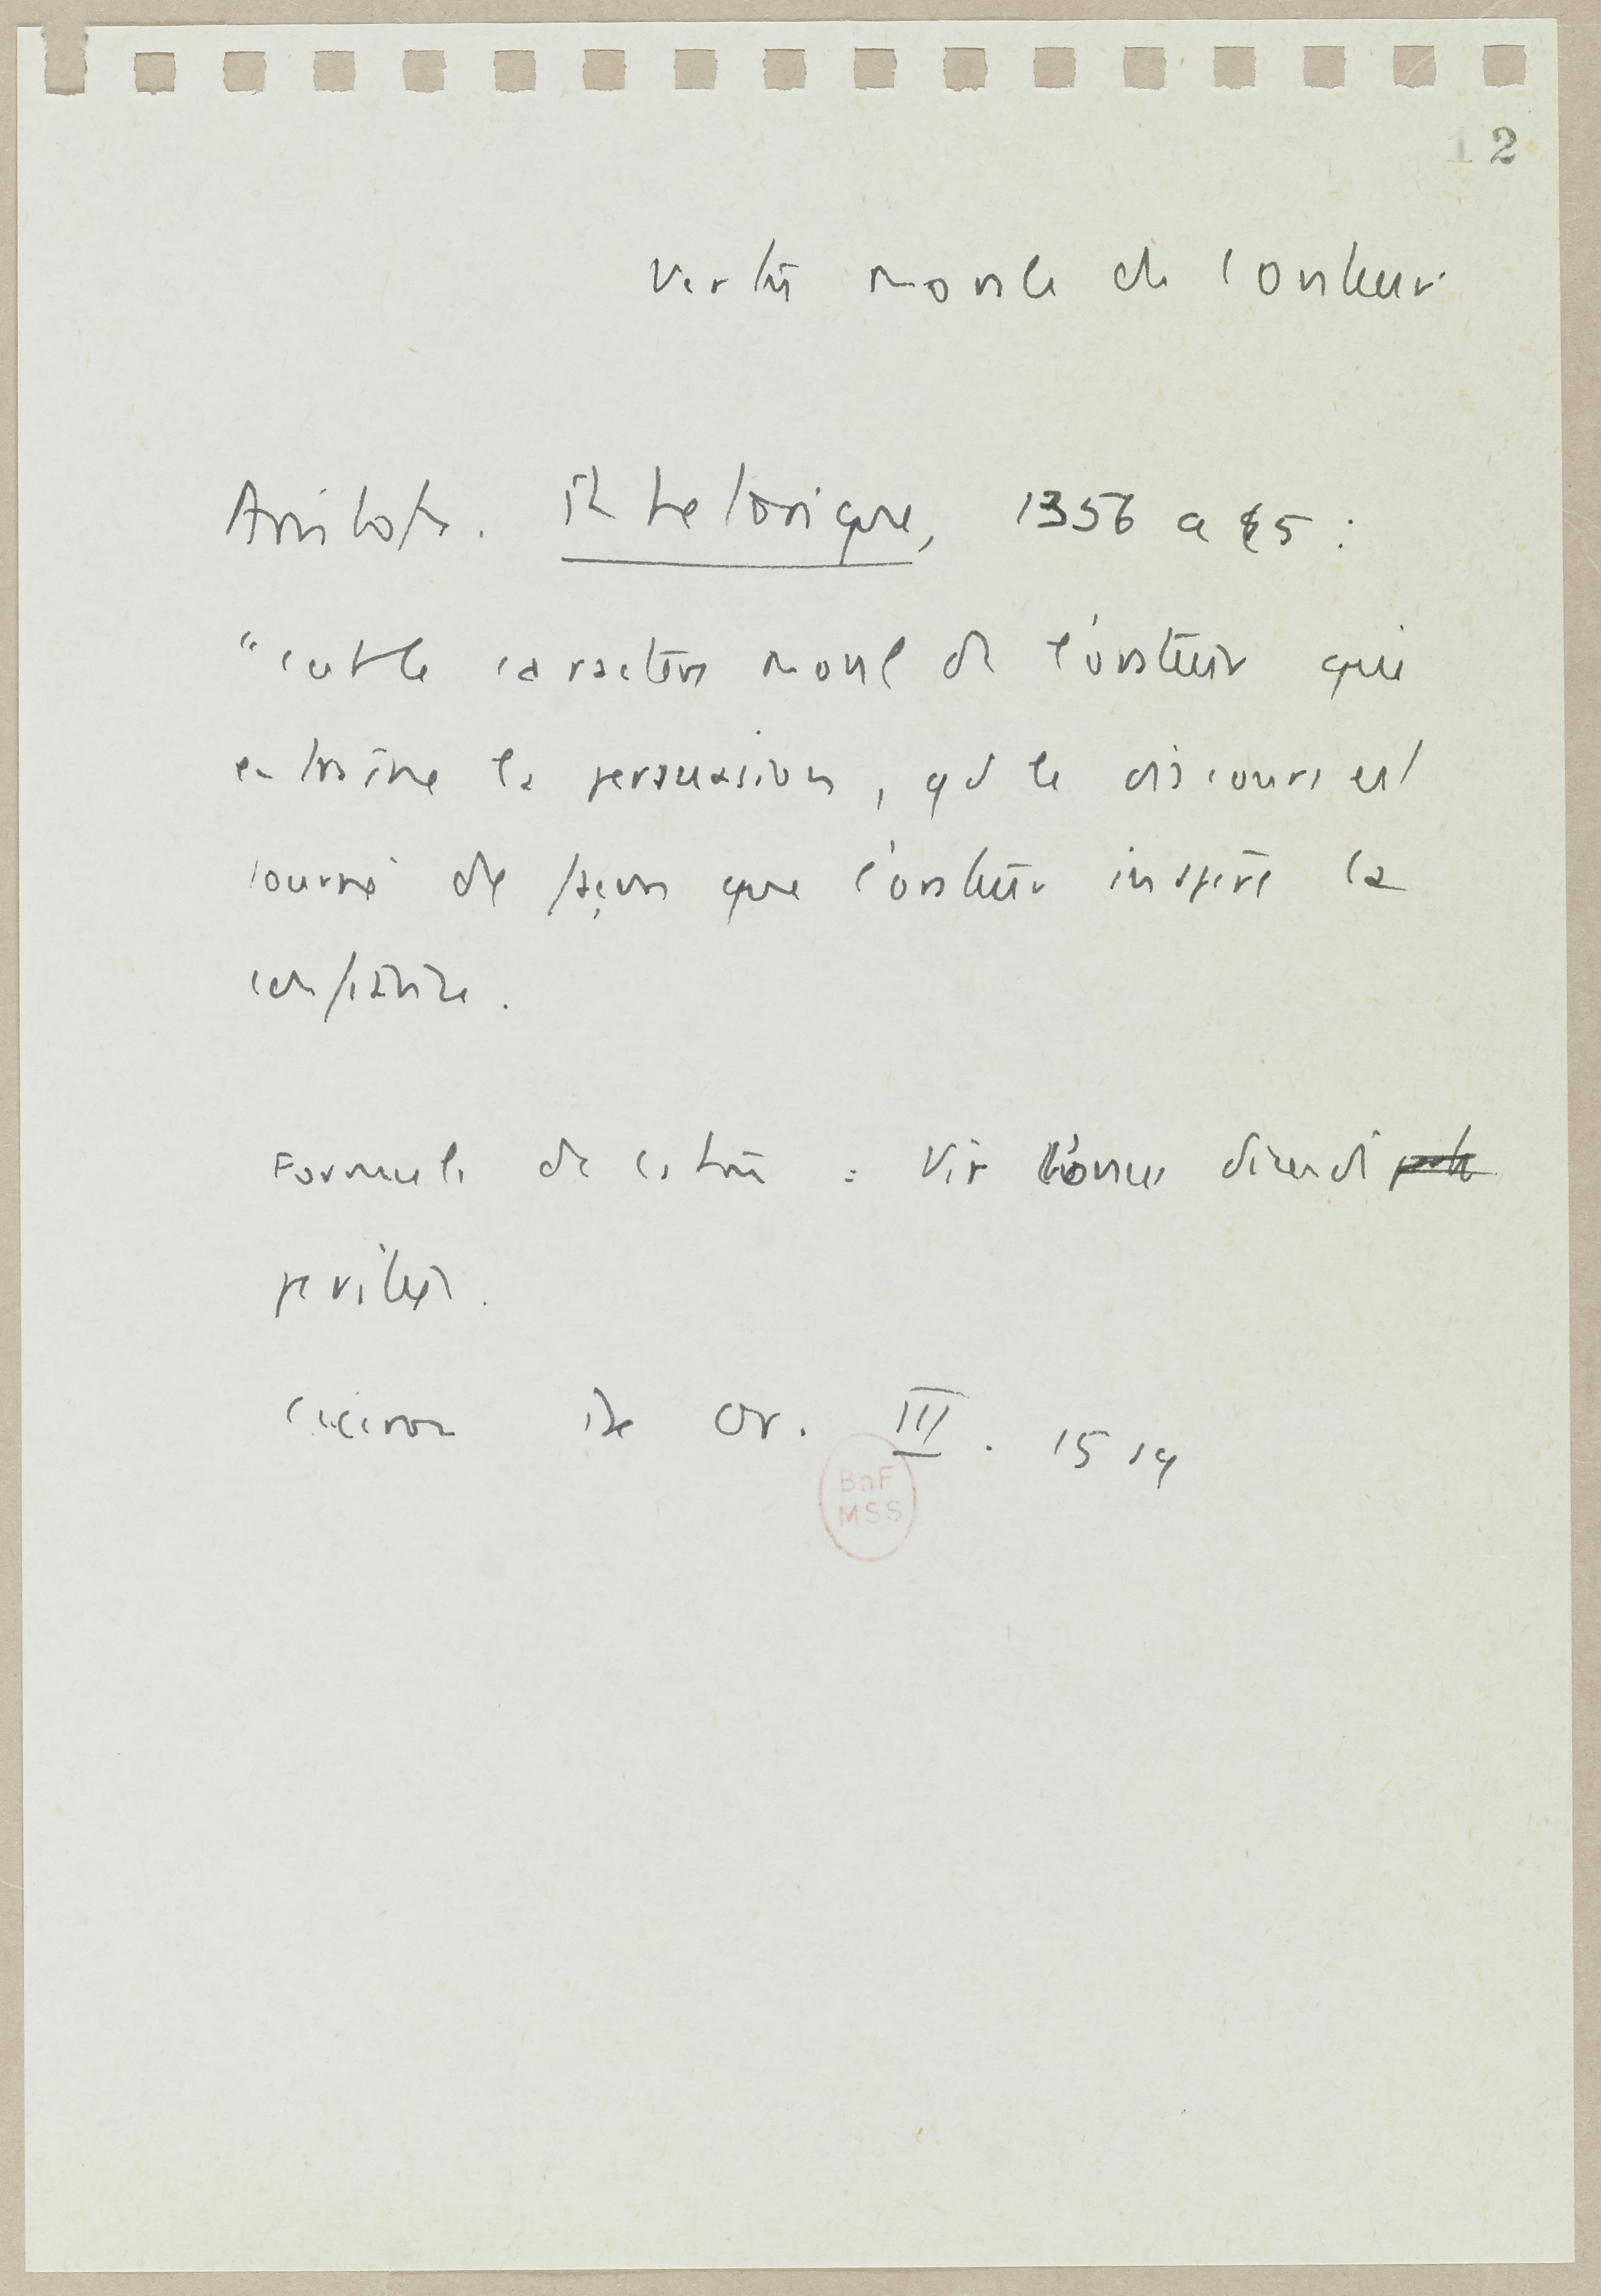 12
Vertu morale de l'orateur
Aristote. Rhetorique, 1356 a 5 :
"c'est le caractère moral de l'orateur qui
entraîne la persuasion, qd le discours est
tourné de façon que l'orateur inspire la
confiance.
Formule de Caton : Vir bonus dicendi
peritus.
Ciceron De Or. III. 15 19
BnF
MSS